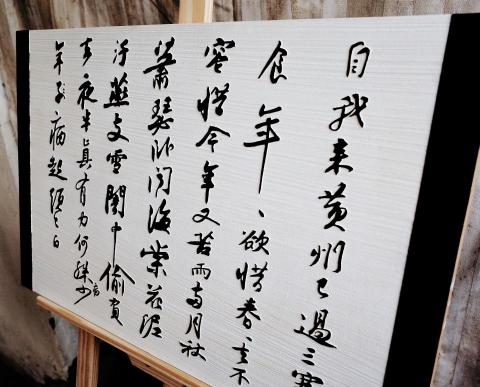 自我來黃州已過三寒
食年、欲惜春、去不
容惜今年又苦雨兩月秋
蕭瑟臥聞海棠花泥
汙燕支雪闇中偷負
去夜半真有力何殊少
年子病起須已白